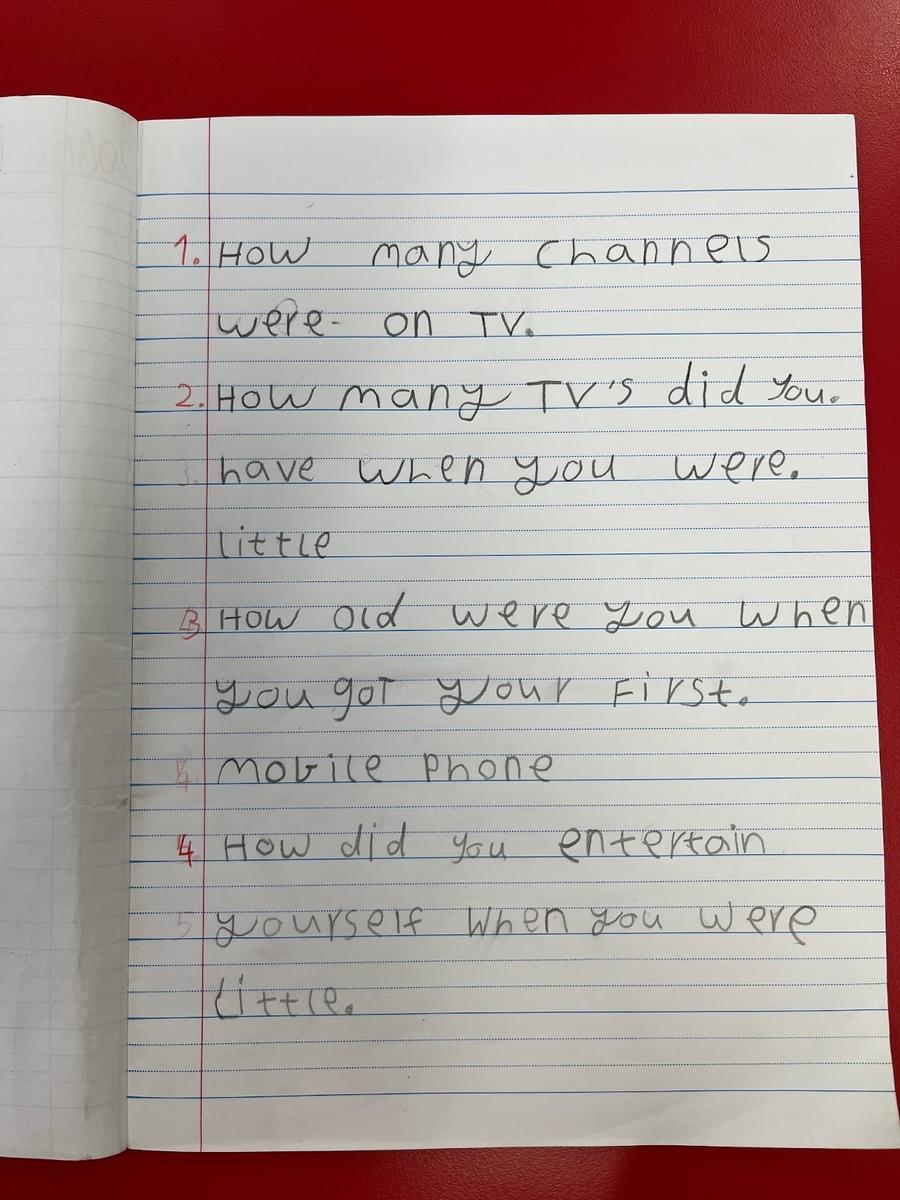 1. How many channels
were- on TV.
2. How many TV's did you.
3. have when you were.
little
3 How old were you when
you got your First.
4 mobile phone
4. How did you entertain
5 yourself when you were
little.